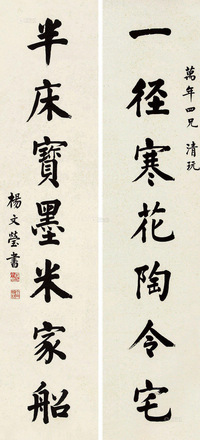 萬年四兄 清玩
一徑寒花陶令宅
半床寶墨米家船
楊文瑩書